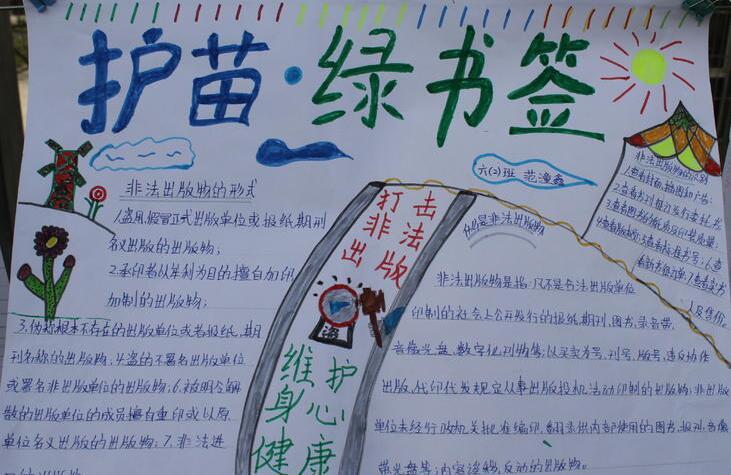 护苗·绿书签
六(2)班
非法出版物的形式
1.盗用、假冒正式出版单位或报纸期刊
名义出版的出版物;
2.承印者以牟利为目的擅自加印
加制的出版物;
3.伪称根本不存在的出版单位或者报纸,期
刊名称的出版物,4.盗的不署名出版单位
或署名非出版单位的出版物;6.被明令解
散的出版单位的成员擅自重印或以原
单位名义出版的出版物;7.非法进
打击
非法
出版
盗
维护
身心
健康
什么是非法出版物
非法出版物是指:凡不是合法出版单位
印制的社会上公开发行的报纸期刊、图书、录音带、
音像光盘、数字化刊物售;以买卖书号、刊号、版号,违反协作
出版、代印代发规定从事出版投机活动印制的出版物;非出版
单位未经行政机关批准编印、翻录供内部使用的图书、报刊、音像
非法出版物的识别
1.查看封面、插图和广告:
2.查看书刊有
3.查看图书的纸质及印装质量:
人及售价。